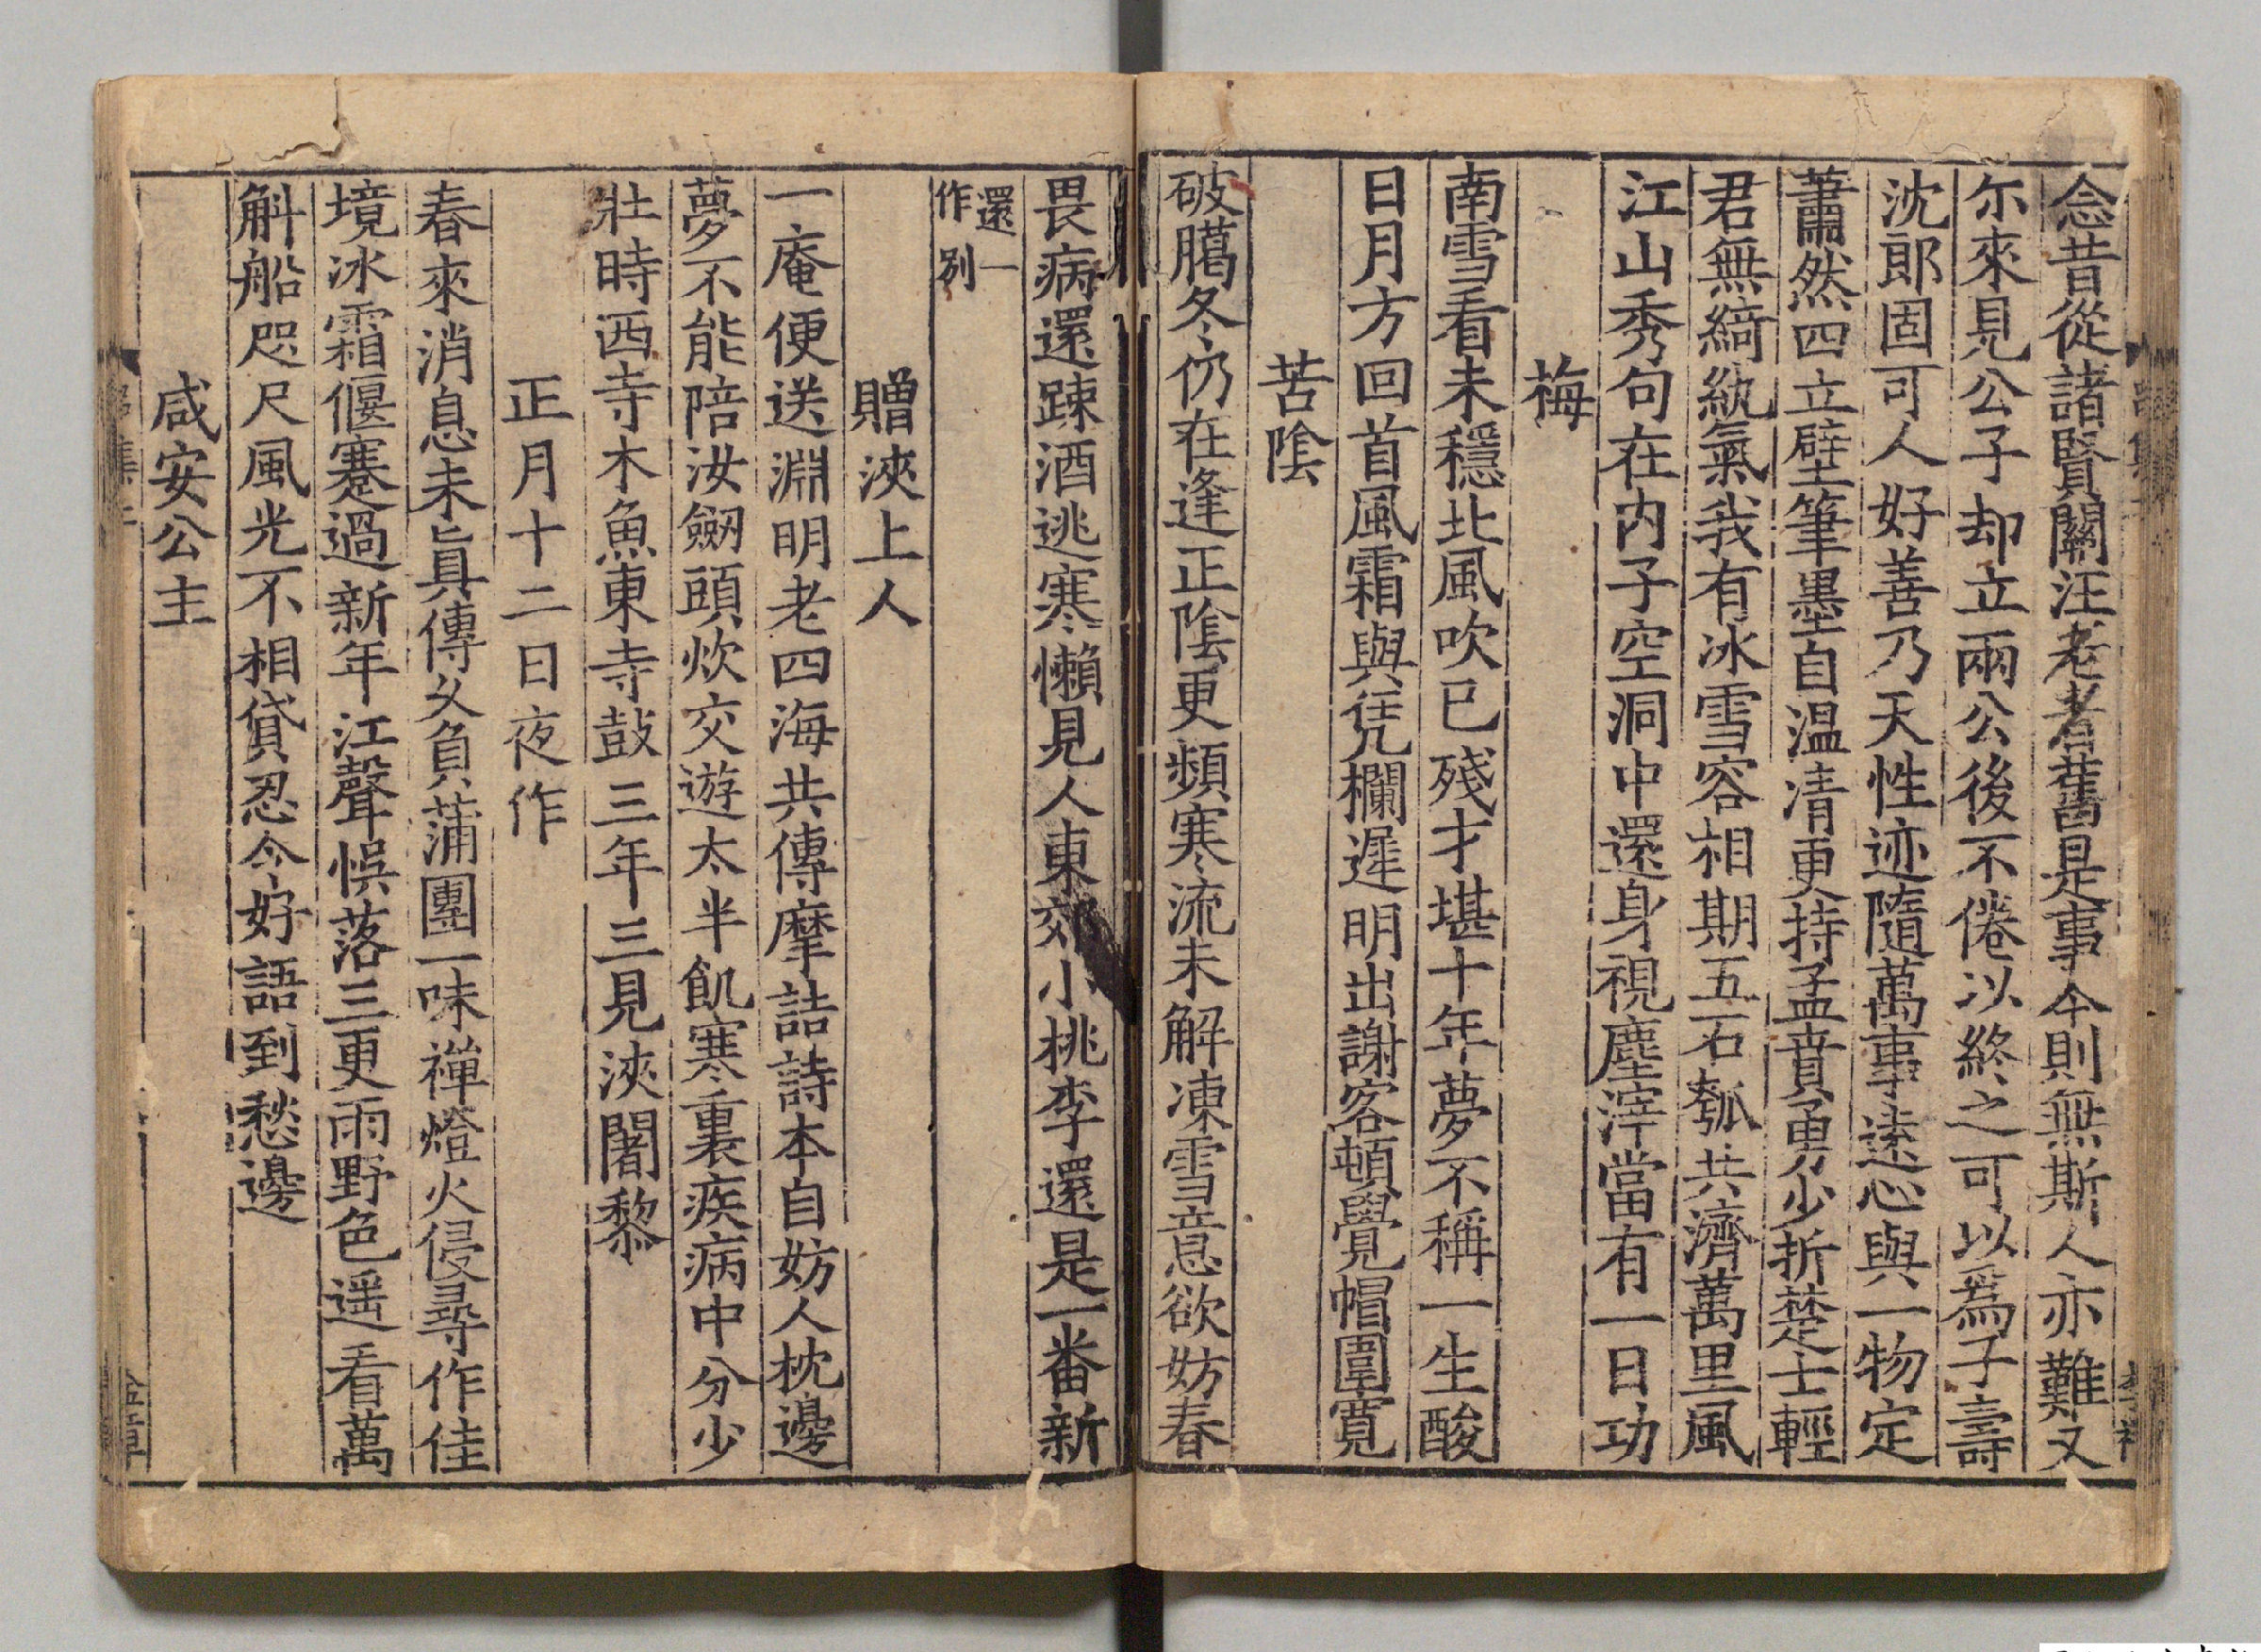 念昔從諸賢關汪老耆舊是事今則無斯人亦難又
尓來見公子却立兩公後不倦以終之可以爲子壽
沈郎固可人好善乃天性迹隨萬事遠心與一物定
蕭然四立壁筆墨自温清更持孟賁勇少折楚士輕
君無綺紈氣我有冰雪容相期五石瓠共濟萬里風
江山秀句在内子空洞中還身視塵滓當有一日功
梅
南雪看未穩北風吹已殘才堪十年夢不稱一生酸
日月方回首風霜與凭欄遲明出謝客頓覺帽圍寬
苦陰
破臈冬仍在逢正陰更頻寒流未解凍雪意欲妨春
畏病還踈酒逃寒懶見人東郊小桃李還是一番新
還一
作別
贈浹上人
一庵便送淵明老四海共傳摩詰詩本自妨人枕邊
夢不能陪汝劒頭炊交遊太半飢寒裏疾病中分少
壯時西寺木魚東寺鼓三年三見浹闍黎
正月十二日夜作
春來消息未眞傳久負蒲團一味禪燈火侵尋作佳
境冰霜偃蹇過新年江聲悞落三更雨野色遥看萬
斛船咫尺風光不相貸忍令好語到愁邊
咸安公主